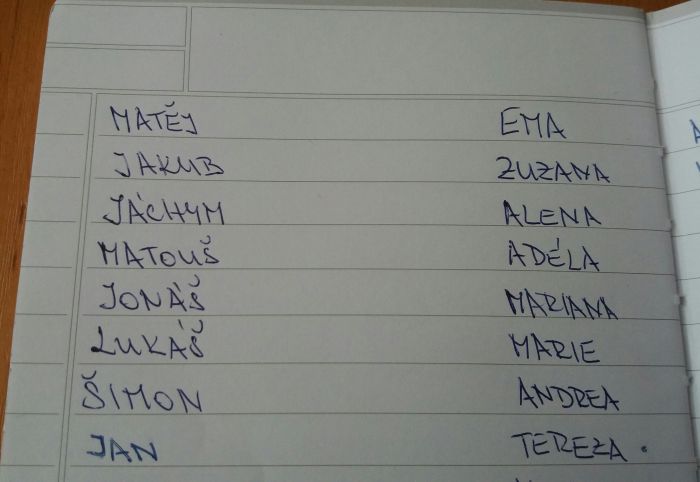 MATĚJ EMA
JAKUB ZUZANA
JÁCHYM ALENA
MATOUŠ ADÉLA
JONÁŠ MARIANA
LUKÁŠ MARIE
ŠIMON ANDREA
JAN TEREZA.